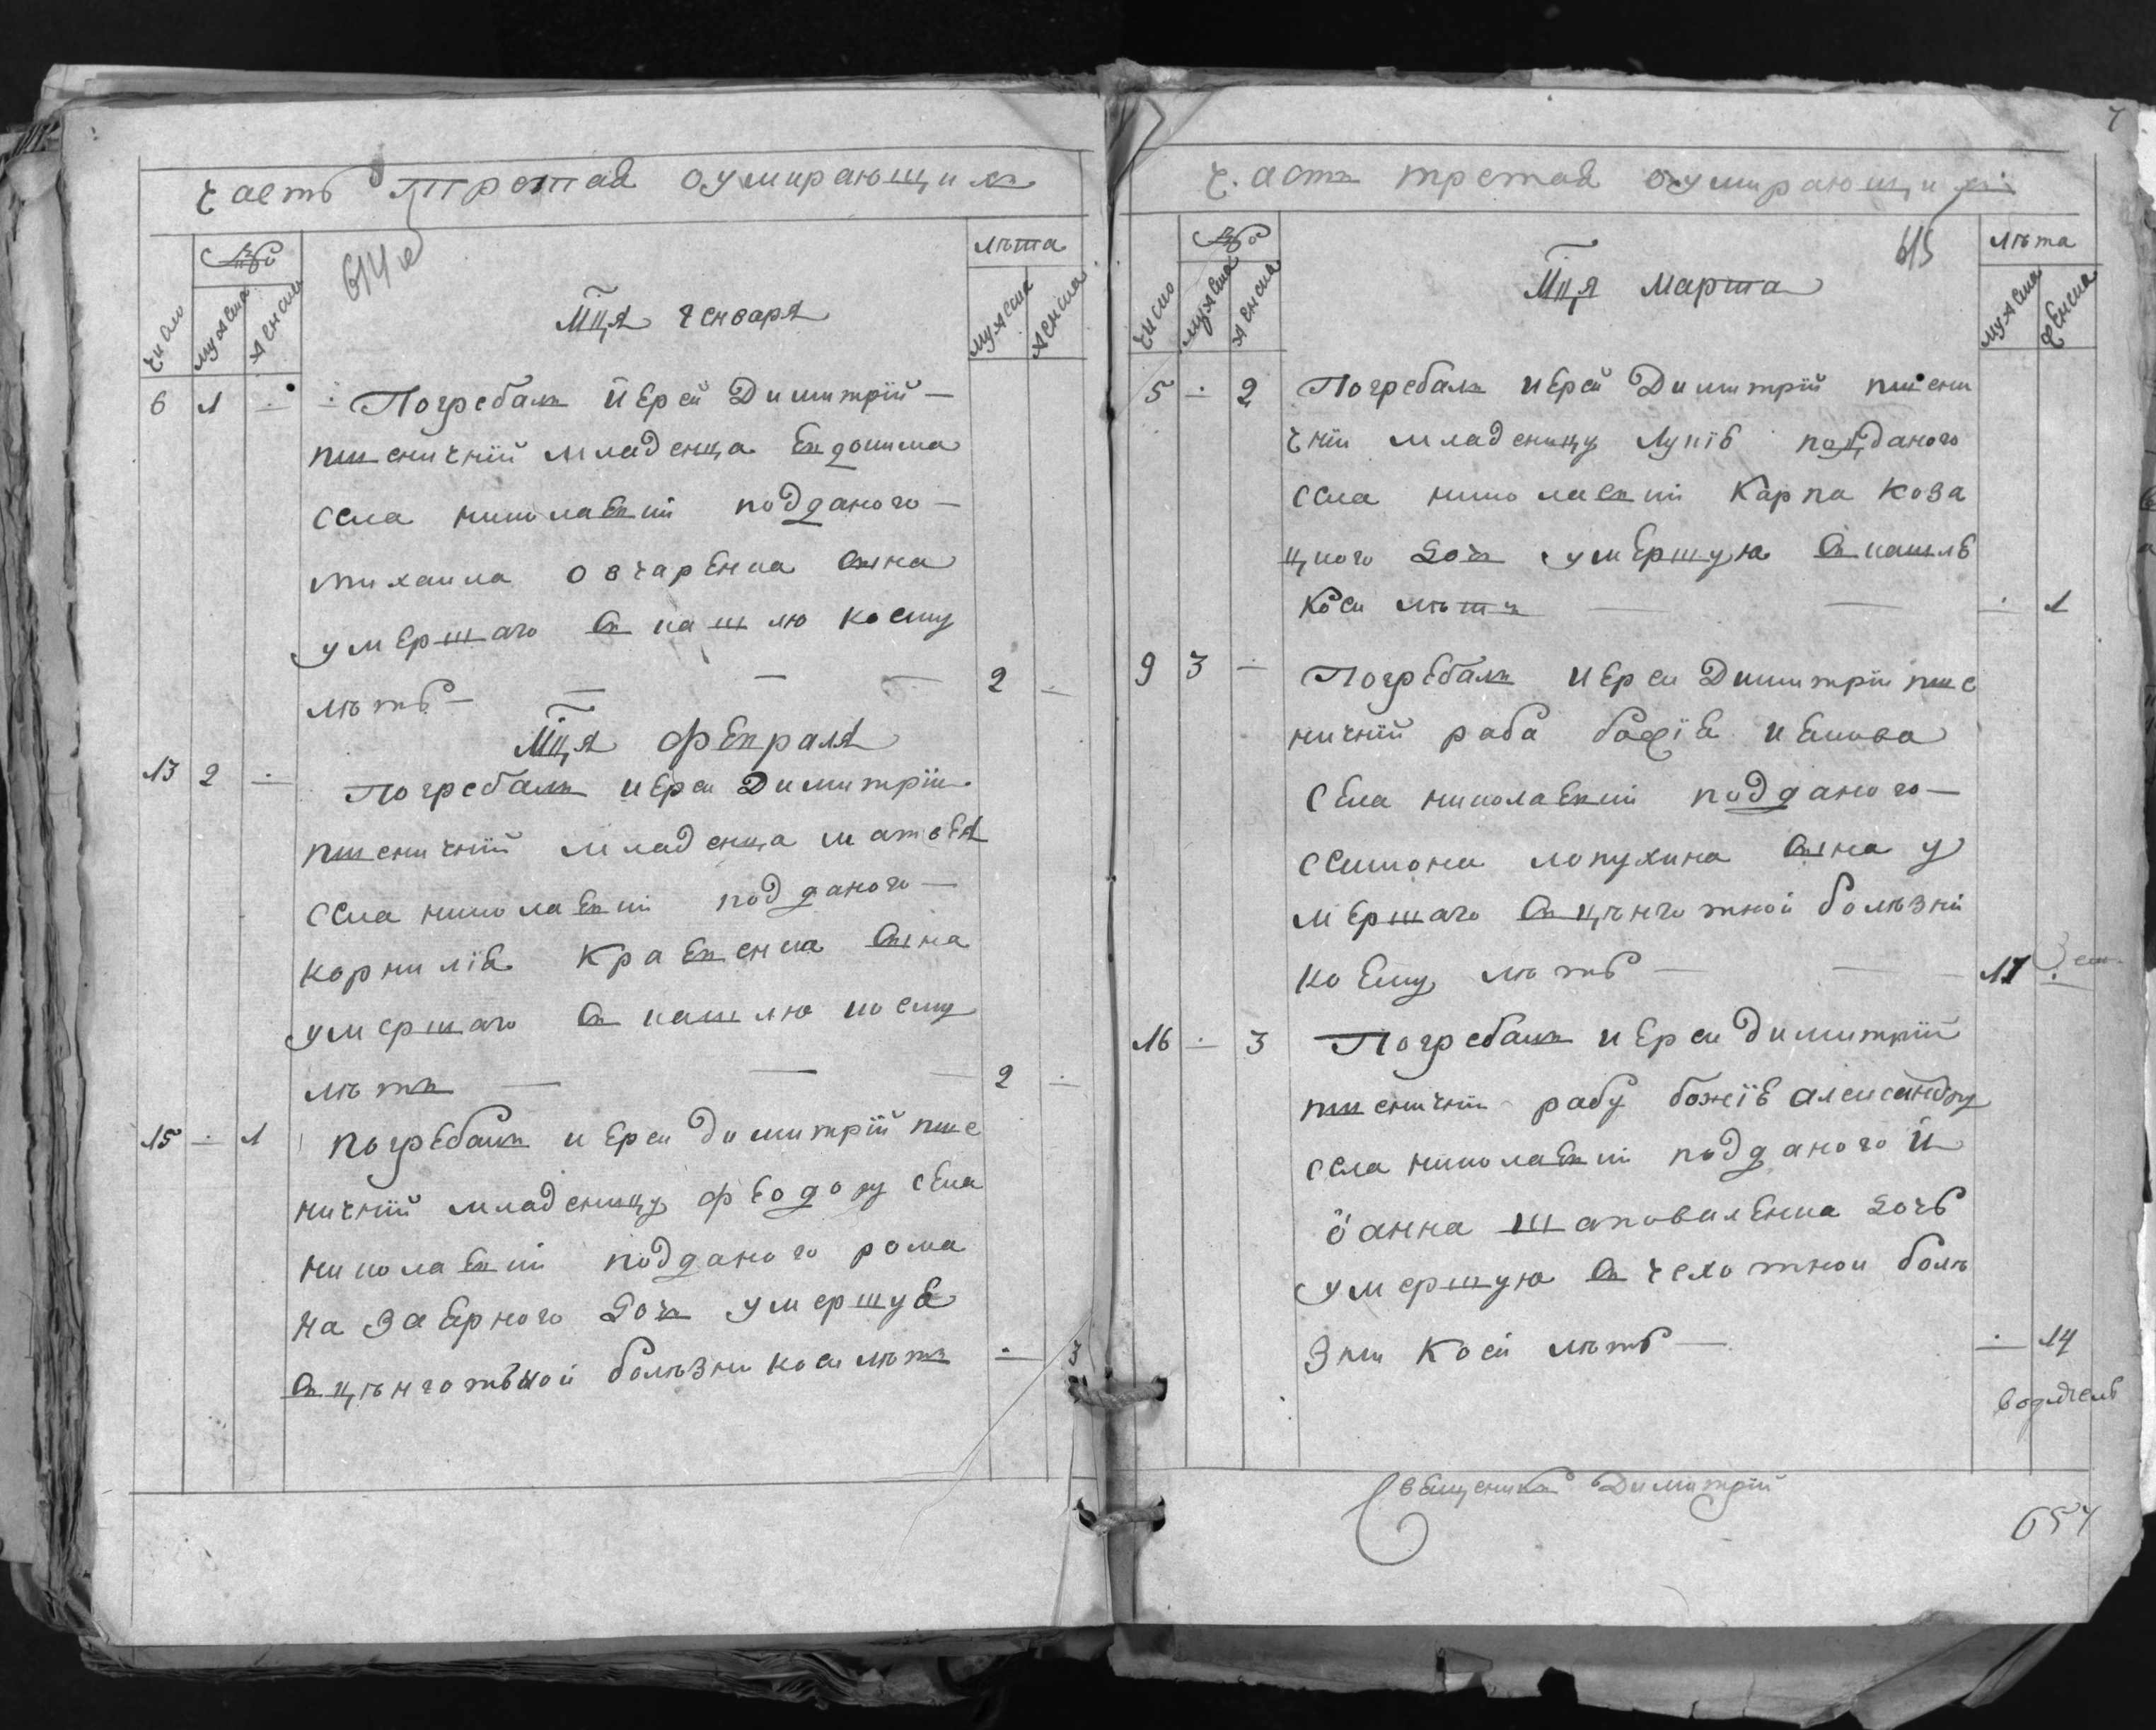 часть третая оумирающимъ
число
мужеска
женска
614 об
лѣта
мужеска
женска
Мця генваря
6 1 Погребалъ іерей Димитрїй
пшеничнїй младенца Евдокима
села николаевки подданого
михаила овчаренка сына
умершаго от кашлю коему
лѣтъ 2
Мця февраля
13 2 Погребалъ иерей Димитрїй
пшеничнїй младенца матвея
села николаевки подданого
корнилїя кравенка сына
умершаго от кашлю коему
лѣтъ 2
15 1 погребалъ иерей димитрїй пше
ничнїй младеницу феодору села
николаевки подданого рома
на заверного дочь умершуя
от цѣнготьной болѣзни коей лѣтъ 3
часть третая оумирающимъ
число
мужеска
женска
615
лѣта
мужеска
женска
Мця марта
5 2 Погребалъ иерей Димитрїй пшени
чнїй младеницу подданого
села николаевки Карпа коза
цкого дочь умершую от кашлѣ
коей лѣтъ 1
9 3 Погребалъ иерей Димитрїй пше
ничнїй раба божїя иякова
села николаевки подданого
семиона лопухина сына у
мершаго от цѣнготной болѣзнй
коему лѣтъ 17
16 3 Погребалъ иерей димитрїй
пшеничнїй рабу божїѣ александру
села николаевки подданого й
оанна шаповаленка дочь
умершую от чехотной болѣ
зни коей лѣтъ 14
Священикъ Димитрїй
654